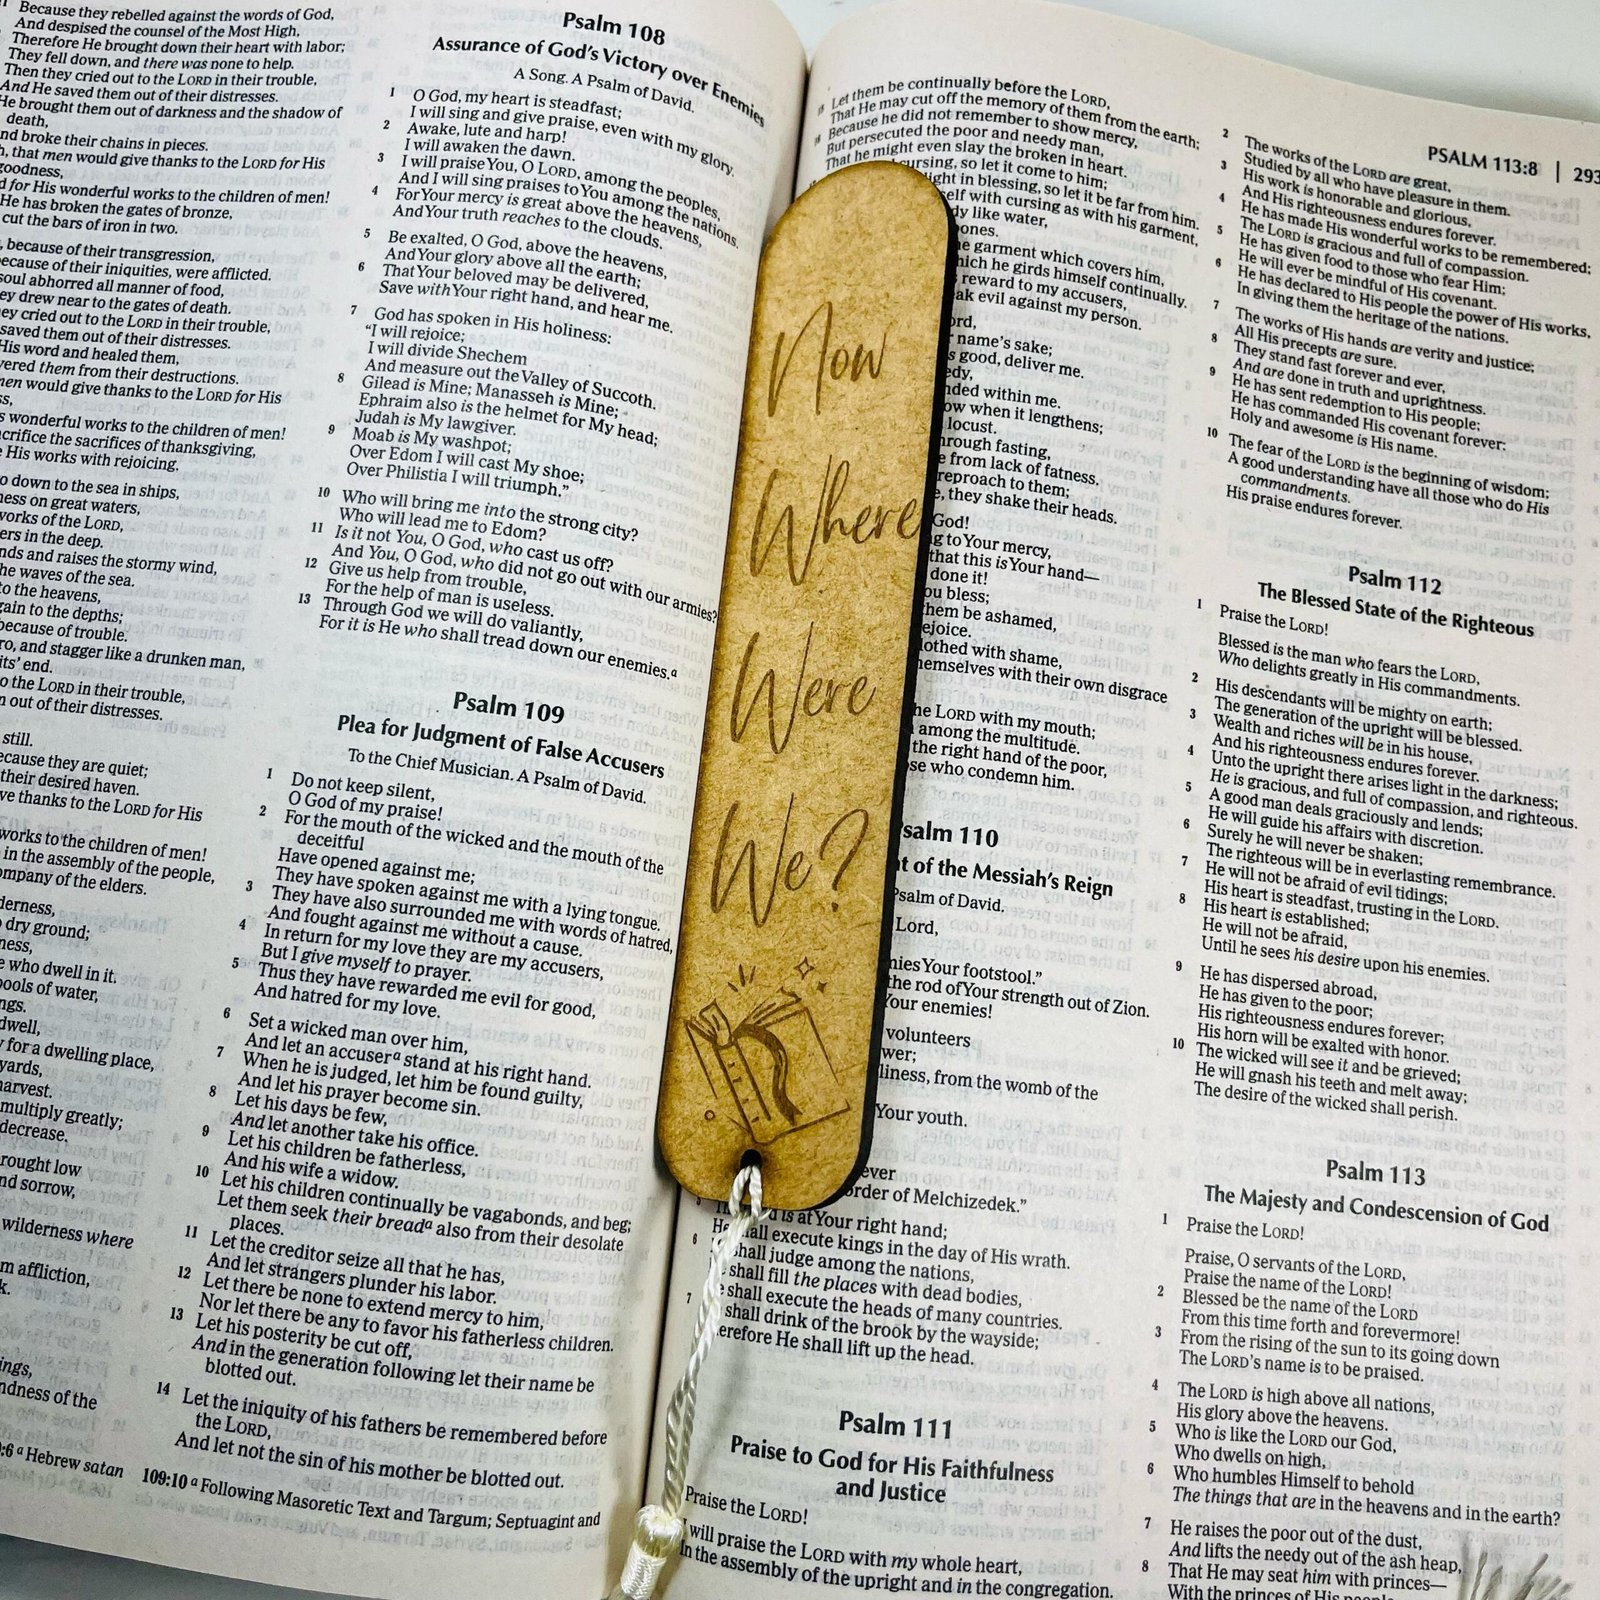 Because they rebelled against the words of God,
And despised the counsel of the Most High,
Therefore He brought down their heart with labor;
They fell down, and there was none to help.
Then they cried out to the LORD in their trouble,
And He saved them out of their distresses.
He brought them out of darkness and the shadow of
death,
nd broke their chains in pieces.
that men would give thanks to the LORD for His
goodness,
d for His wonderful works to the children of men!
He has broken the gates of bronze,
cut the bars of iron in two.
because of their transgression,
because of their iniquities, were afflicted.
soul abhorred all manner of food,
ey drew near to the gates of death.
ey cried out to the LORD in their trouble,
saved them out of their distresses.
His word and healed them,
vered them from their destructions.
men would give thanks to the LORD for His
s wonderful works to the children of men!
crifice the sacrifices of thanksgiving,
His works with rejoicing.
o down to the sea in ships,
ness on great waters,
works of the LORD,
ers in the deep.
nds and raises the stormy wind,
he waves of the sea.
to the heavens,
gain to the depths;
because of trouble.
ro, and stagger like a drunken man,
its' end.
o the LORD in their trouble,
n out of their distresses.
still.
ecause they are quiet;
their desired haven.
ve thanks to the LORD for His
works to the children of men!
in the assembly of the people,
ompany of the elders.
derness,
dry ground;
ness,
e who dwell in it.
pools of water,
ngs.
dwell,
y for a dwelling place,
yards,
harvest.
multiply greatly;
decrease.
rought low
nd sorrow,
wilderness where
m affliction,
k.
ings,
ndness of the
:6 a Hebrew satan
Psalm 108
Assurance of God's Victory over Enemies
A Song. A Psalm of David.
1 O God, my heart is steadfast;
I will sing and give praise, even with my glory.
2 Awake, lute and harp!
I will awaken the dawn.
3 I will praise You, O LORD, among the peoples,
And I will sing praises to You among the nations.
4 For Your mercy is great above the heavens,
And Your truth reaches to the clouds.
5 Be exalted, O God, above the heavens,
And Your glory above all the earth;
6 That Your beloved may be delivered,
Save with Your right hand, and hear me.
7 God has spoken in His holiness:
"I will rejoice;
I will divide Shechem
And measure out the Valley of Succoth.
8 Gilead is Mine; Manasseh is Mine;
Ephraim also is the helmet for My head;
Judah is My lawgiver.
9 Moab is My washpot;
Over Edom I will cast My shoe;
Over Philistia I will triumph."
10 Who will bring me into the strong city?
Who will lead me to Edom?
11 Is it not You, O God, who cast us off?
And You, O God, who did not go out with our armies?
12 Give us help from trouble,
For the help of man is useless.
13 Through God we will do valiantly,
For it is He who shall tread down our enemies.a
Psalm 109
Plea for Judgment of False Accusers
To the Chief Musician. A Psalm of David.
1 Do not keep silent,
O God of my praise!
2 For the mouth of the wicked and the mouth of the
deceitful
Have opened against me;
They have spoken against me with a lying tongue.
3 They have also surrounded me with words of hatred,
And fought against me without a cause.
4 In return for my love they are my accusers,
But I give myself to prayer.
5 Thus they have rewarded me evil for good,
And hatred for my love.
6 Set a wicked man over him,
And let an accusera stand at his right hand.
7 When he is judged, let him be found guilty,
And let his prayer become sin.
8 Let his days be few,
And let another take his office.
9 Let his children be fatherless,
And his wife a widow.
10 Let his children continually be vagabonds, and beg;
Let them seek their breada also from their desolate
places.
11 Let the creditor seize all that he has,
And let strangers plunder his labor.
12 Let there be none to extend mercy to him,
Nor let there be any to favor his fatherless children.
13 Let his posterity be cut off,
And in the generation following let their name be
blotted out.
14 Let the iniquity of his fathers be remembered before
the LORD,
And let not the sin of his mother be blotted out.
109:10 a Following Masoretic Text and Targum; Septuagint and
Now
Where
Were
We?
15 Let them be continually before the LORD,
That He may cut off the memory of them from the earth;
16 Because he did not remember to show mercy,
But persecuted the poor and needy man,
That he might even slay the broken in heart.
cursing, so let it come to him;
ight in blessing, so let it be far from him.
self with cursing as with his garment,
dy like water,
ones.
e garment which covers him,
hich he girds himself continually.
reward to my accusers,
ak evil against my person.
ord,
name's sake;
s good, deliver me.
edy,
nded within me.
ow when it lengthens;
locust.
hrough fasting,
e from lack of fatness.
reproach to them;
e, they shake their heads.
God!
g to Your mercy,
that this is Your hand—
done it!
ou bless;
hem be ashamed,
ejoice.
lothed with shame,
hemselves with their own disgrace
he LORD with my mouth;
among the multitude.
the right hand of the poor,
se who condemn him.
salm 110
t of the Messiah's Reign
Psalm of David.
Lord,
nies Your footstool."
the rod of Your strength out of Zion.
Your enemies!
volunteers
wer;
liness, from the womb of the
Your youth.
ever
order of Melchizedek."
5 d is at Your right hand;
He shall execute kings in the day of His wrath.
6 shall judge among the nations,
shall fill the places with dead bodies,
e shall execute the heads of many countries.
7 shall drink of the brook by the wayside;
erefore He shall lift up the head.
Psalm 111
Praise to God for His Faithfulness
and Justice
Praise the LORD!
I will praise the LORD with my whole heart,
In the assembly of the upright and in the congregation.
PSALM 113:8 | 293
2 The works of the LORD are great,
Studied by all who have pleasure in them.
3 His work is honorable and glorious,
And His righteousness endures forever.
4 He has made His wonderful works to be remembered;
The LORD is gracious and full of compassion.
5 He has given food to those who fear Him;
He will ever be mindful of His covenant.
6 He has declared to His people the power of His works,
In giving them the heritage of the nations.
7 The works of His hands are verity and justice;
All His precepts are sure.
8 They stand fast forever and ever,
And are done in truth and uprightness.
9 He has sent redemption to His people;
He has commanded His covenant forever:
Holy and awesome is His name.
10 The fear of the LORD is the beginning of wisdom;
A good understanding have all those who do His
commandments.
His praise endures forever.
Psalm 112
The Blessed State of the Righteous
1 Praise the LORD!
Blessed is the man who fears the LORD,
Who delights greatly in His commandments.
2 His descendants will be mighty on earth;
The generation of the upright will be blessed.
3 Wealth and riches will be in his house,
And his righteousness endures forever.
4 Unto the upright there arises light in the darkness;
He is gracious, and full of compassion, and righteous.
5 A good man deals graciously and lends;
He will guide his affairs with discretion.
6 Surely he will never be shaken;
The righteous will be in everlasting remembrance.
7 He will not be afraid of evil tidings;
His heart is steadfast, trusting in the LORD.
8 His heart is established;
He will not be afraid,
Until he sees his desire upon his enemies.
9 He has dispersed abroad,
He has given to the poor;
His righteousness endures forever;
His horn will be exalted with honor.
10 The wicked will see it and be grieved;
He will gnash his teeth and melt away;
The desire of the wicked shall perish.
Psalm 113
The Majesty and Condescension of God
1 Praise the LORD!
Praise, O servants of the LORD,
Praise the name of the LORD!
2 Blessed be the name of the LORD
From this time forth and forevermore!
3 From the rising of the sun to its going down
The LORD's name is to be praised.
4 The LORD is high above all nations,
His glory above the heavens.
5 Who is like the LORD our God,
Who dwells on high,
6 Who humbles Himself to behold
The things that are in the heavens and in the earth?
7 He raises the poor out of the dust,
And lifts the needy out of the ash heap,
8 That He may seat him with princes—
With the princes of His people.